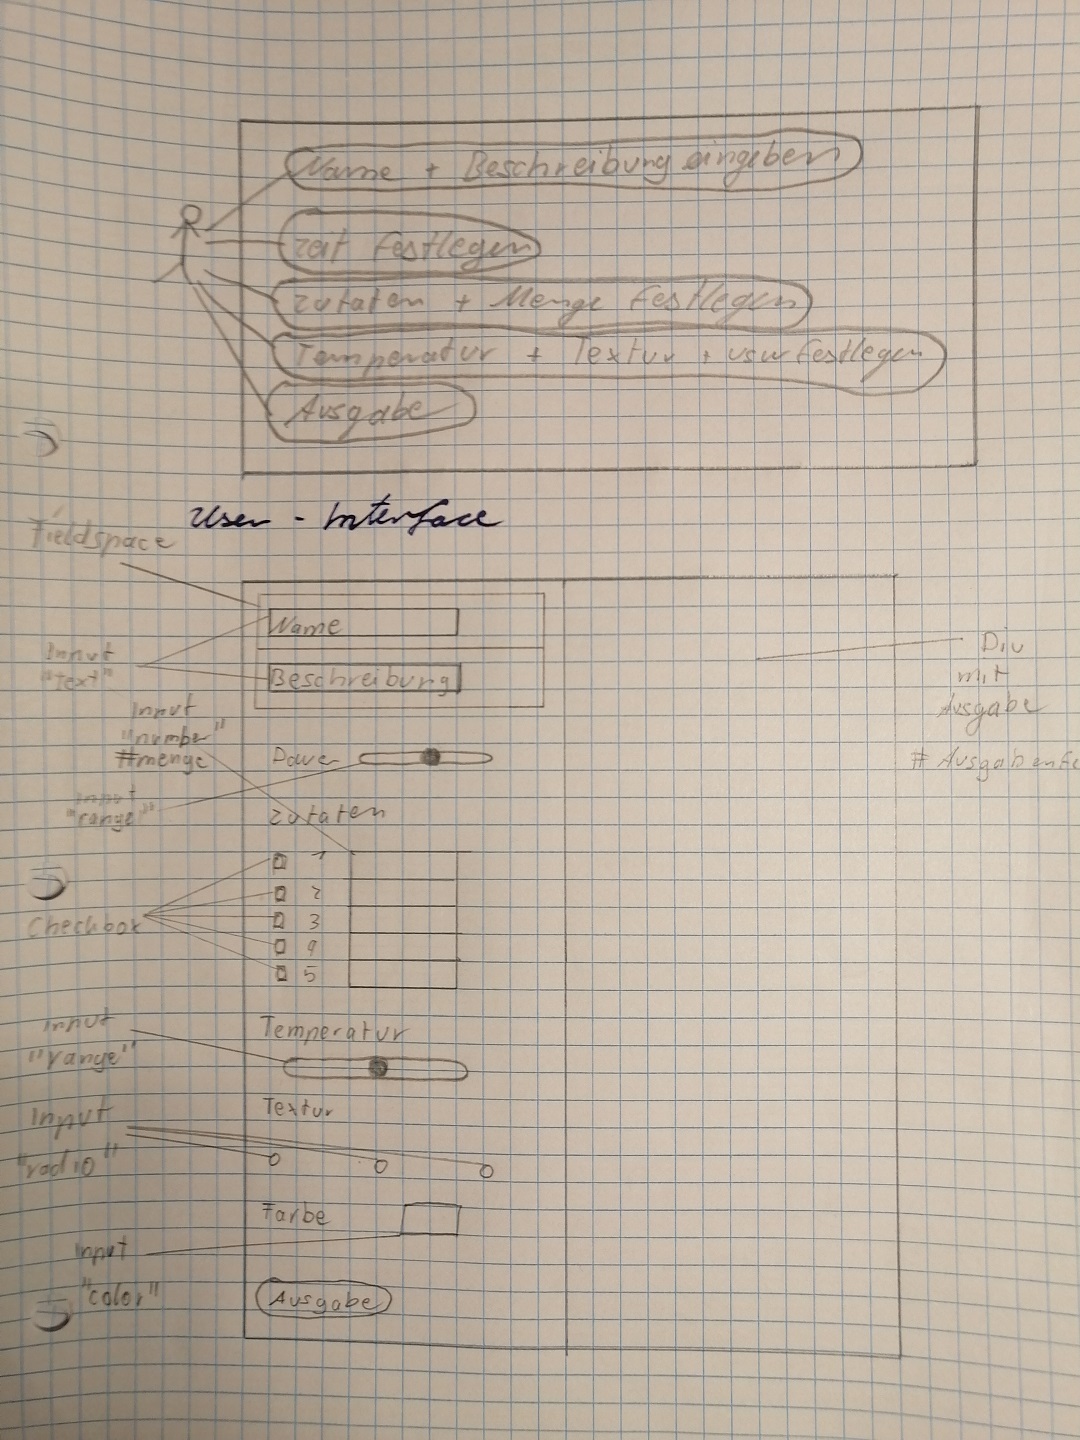 Name + Beschreibung eingeben
Zeit festlegen
Zutaten + Menge festlegen
Temperatur + Textur + usw festlegen
Ausgabe
User - Interface
Fieldspace
Name
Input
"text"
Beschreibung
Div
mit
Ausgabe
Input
"number"
#menge
Dauer
Input
"range"
Zutaten
1
2
3
4
5
Checkbox
Input
"range"
Temperatur
Input
"radio"
Textur
Farbe
Input
"color"
Ausgabe